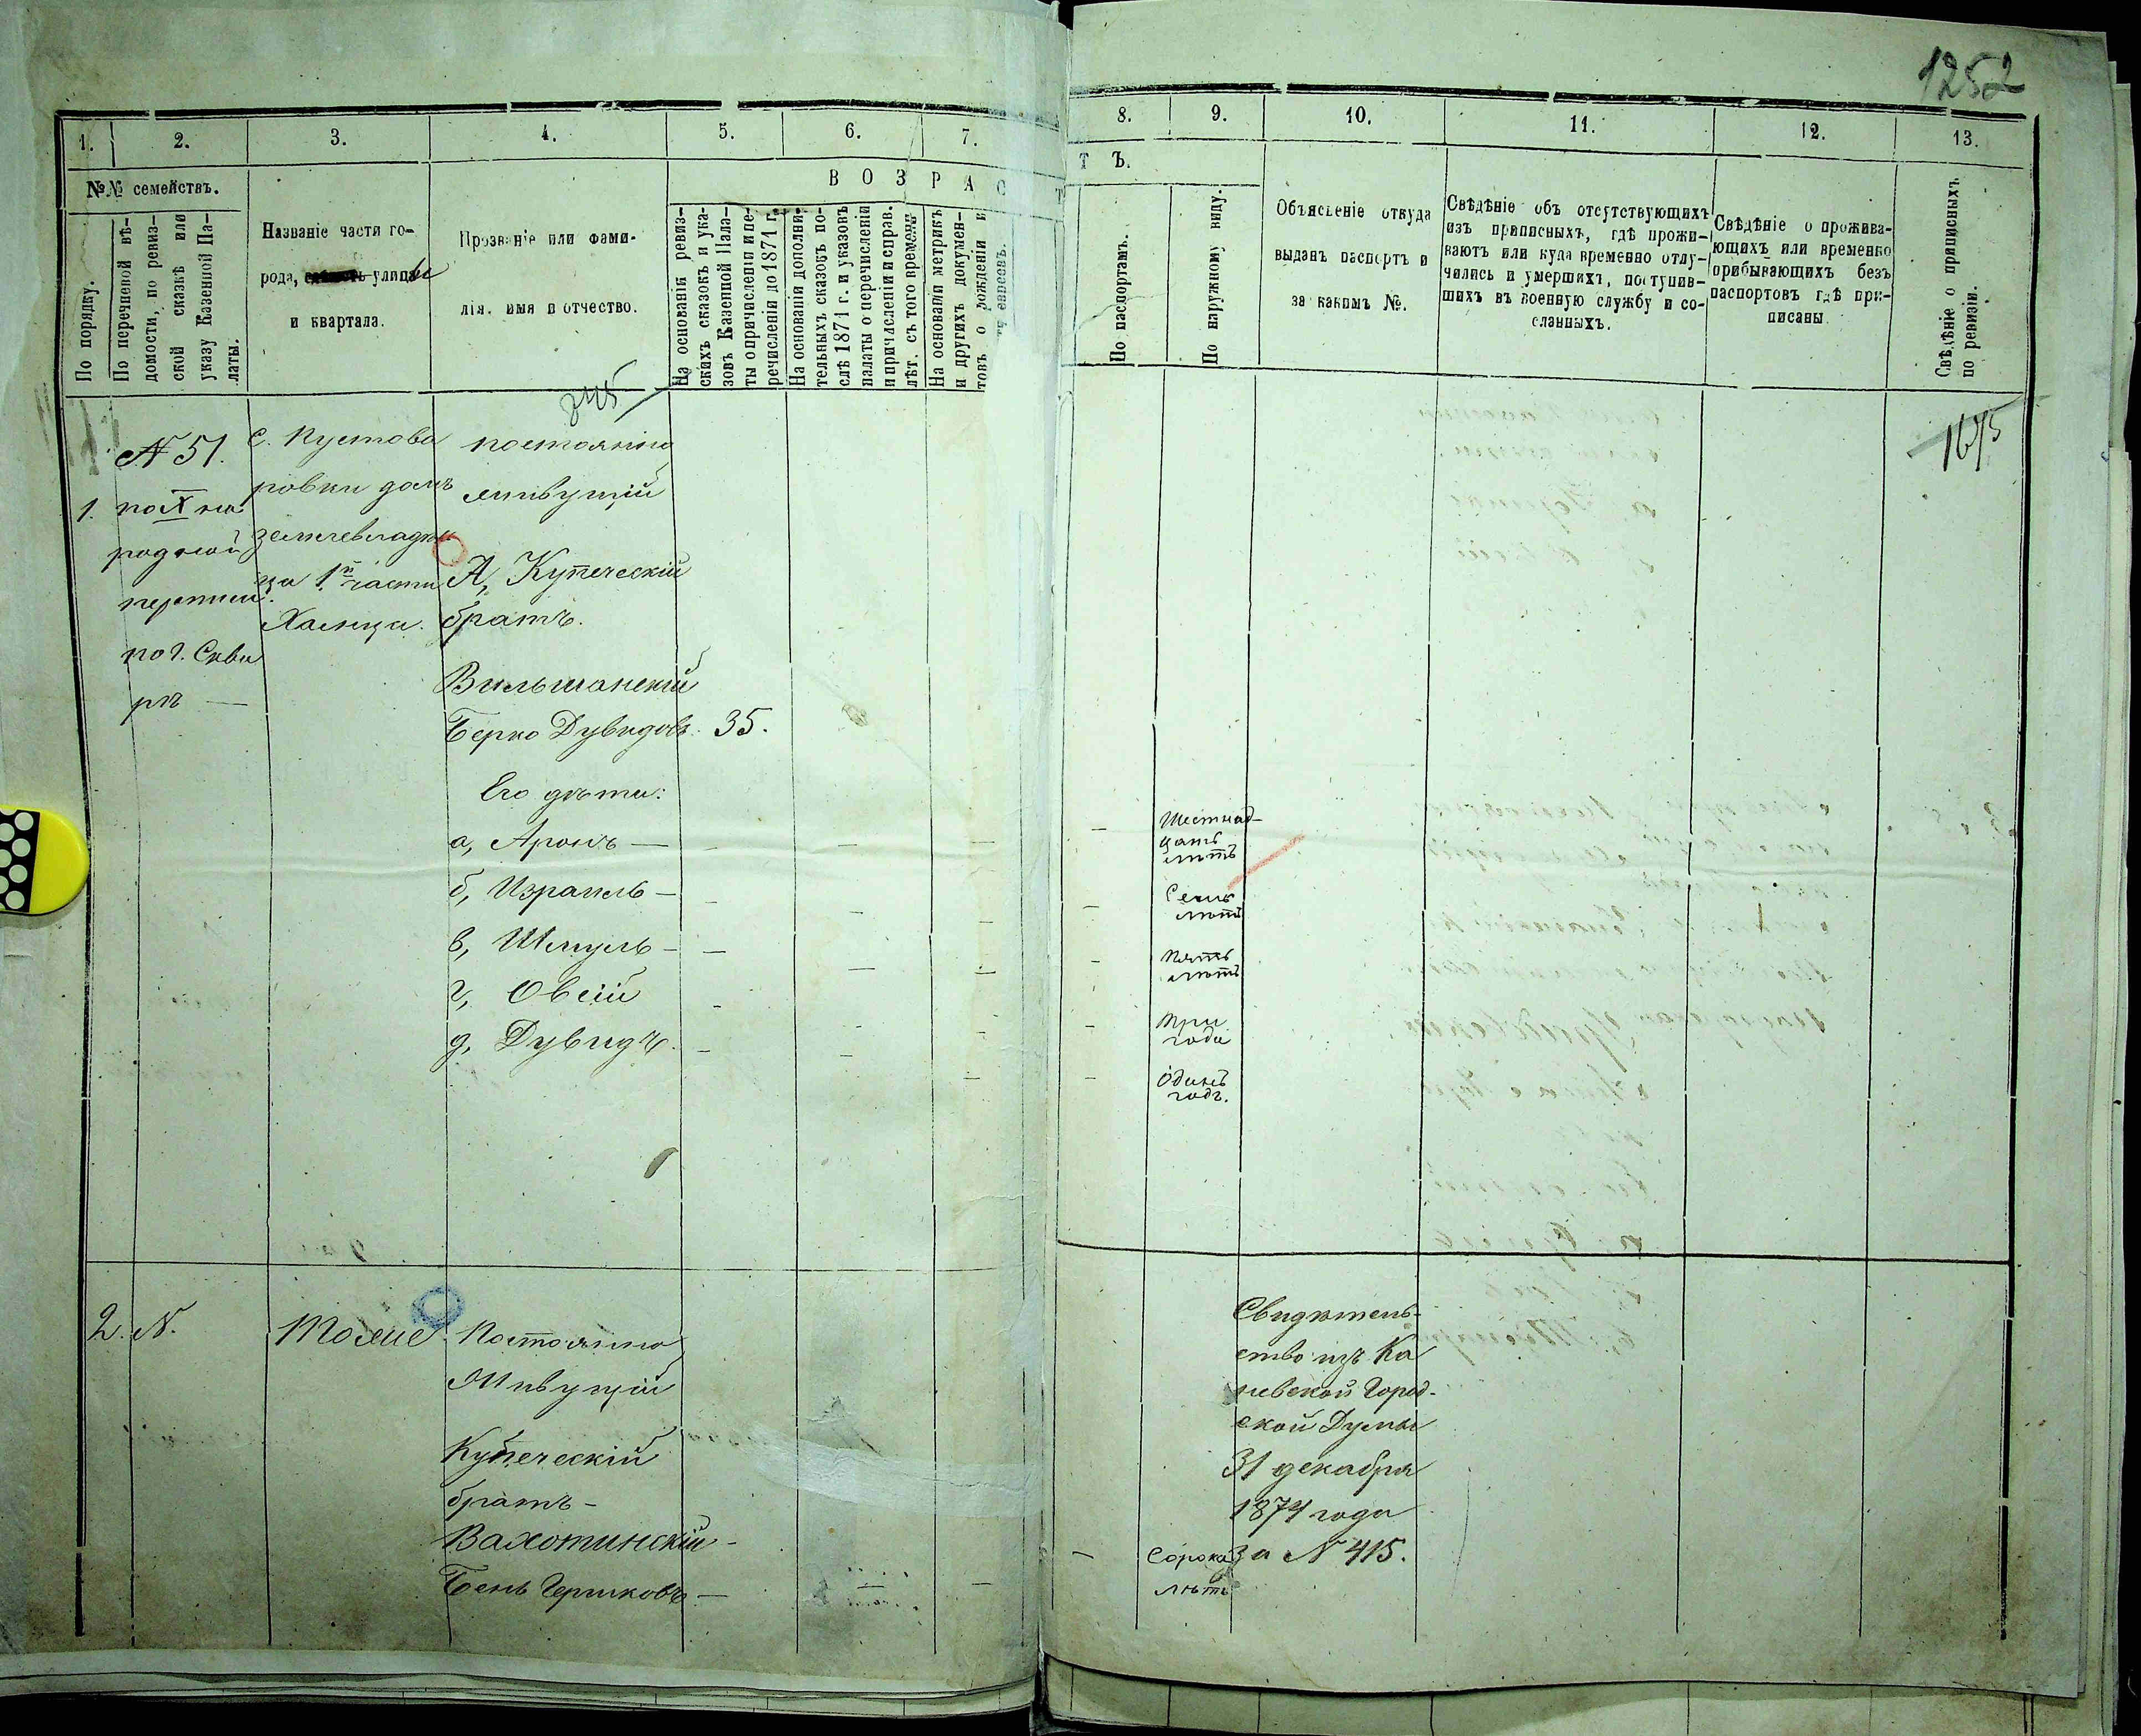 1252
1.
2.
3.
4.
5.
6.
7.
8.
9.
10.
11.
12.
13.
№№ семействъ.
По порядку.
По перечневой вѣ-
домости, по ревиз-
ской сказкѣ или
указу Казенной Па-
латы.
Названіе части го-
рода, улицы
и квартала.
Прозваніе или фами-
лія, имя и отчество.
ВОЗРАСТЪ.
На основаніи ревиз-
скихъ сказокъ и ука-
зовъ Казенной Пала-
ты о причисленіи и пе-
речисленіи до 1871 г.
На основаніи дополни-
тельныхъ сказокъ по-
слѣ 1871 г. и указовъ
палаты о перечисленіи
и причисленіи и справ.
лѣт. съ того времени.
На основаніи метрикъ
и другихъ докумен-
товъ о рожденіи и
евреевъ.
По паспортамъ.
По наружному виду.
Объясненіе откуда
выданъ паспортъ и
за какимъ №.
Свѣдѣніе объ отсутствующихъ
изъ приписныхъ, гдѣ прожи-
ваютъ или куда временно отлу-
чились и умершихъ, поступив-
шихъ въ военную службу и со-
сланныхъ.
Свѣдѣніе о прожива-
ющихъ или временно
прибывающихъ безъ
паспортовъ гдѣ при-
писаны
Свѣдѣніе о приписныхъ
по ревизіи.
1.
№ 51.
по X на
родной
переписи
по г. Скви
рѣ —
с. Пустова
ровки домъ
землевладѣль
ца 1й части
постоянно
живущій
А, Купеческій
братъ.
Вильшанскій
Берко Дувидовъ. 35.
Его дѣти:
а, Аронъ —
Шестнад-
цать
лѣтъ
б, Израиль —
Семь
лѣтъ
в, Шмуль —
Пять
лѣтъ
г, Овсій
три
года
д, Дувидъ.
Одинъ
годъ.
2. №.
Тоже
Постоянно
Живущій
Купеческій
братъ —
Вахотинскій —
Бень Гершковъ —
Сорокъ
лѣтъ
Свидѣтель-
ство изъ Ка
невской Город-
ской Думы
31 декабря
1874 года
за № 415.